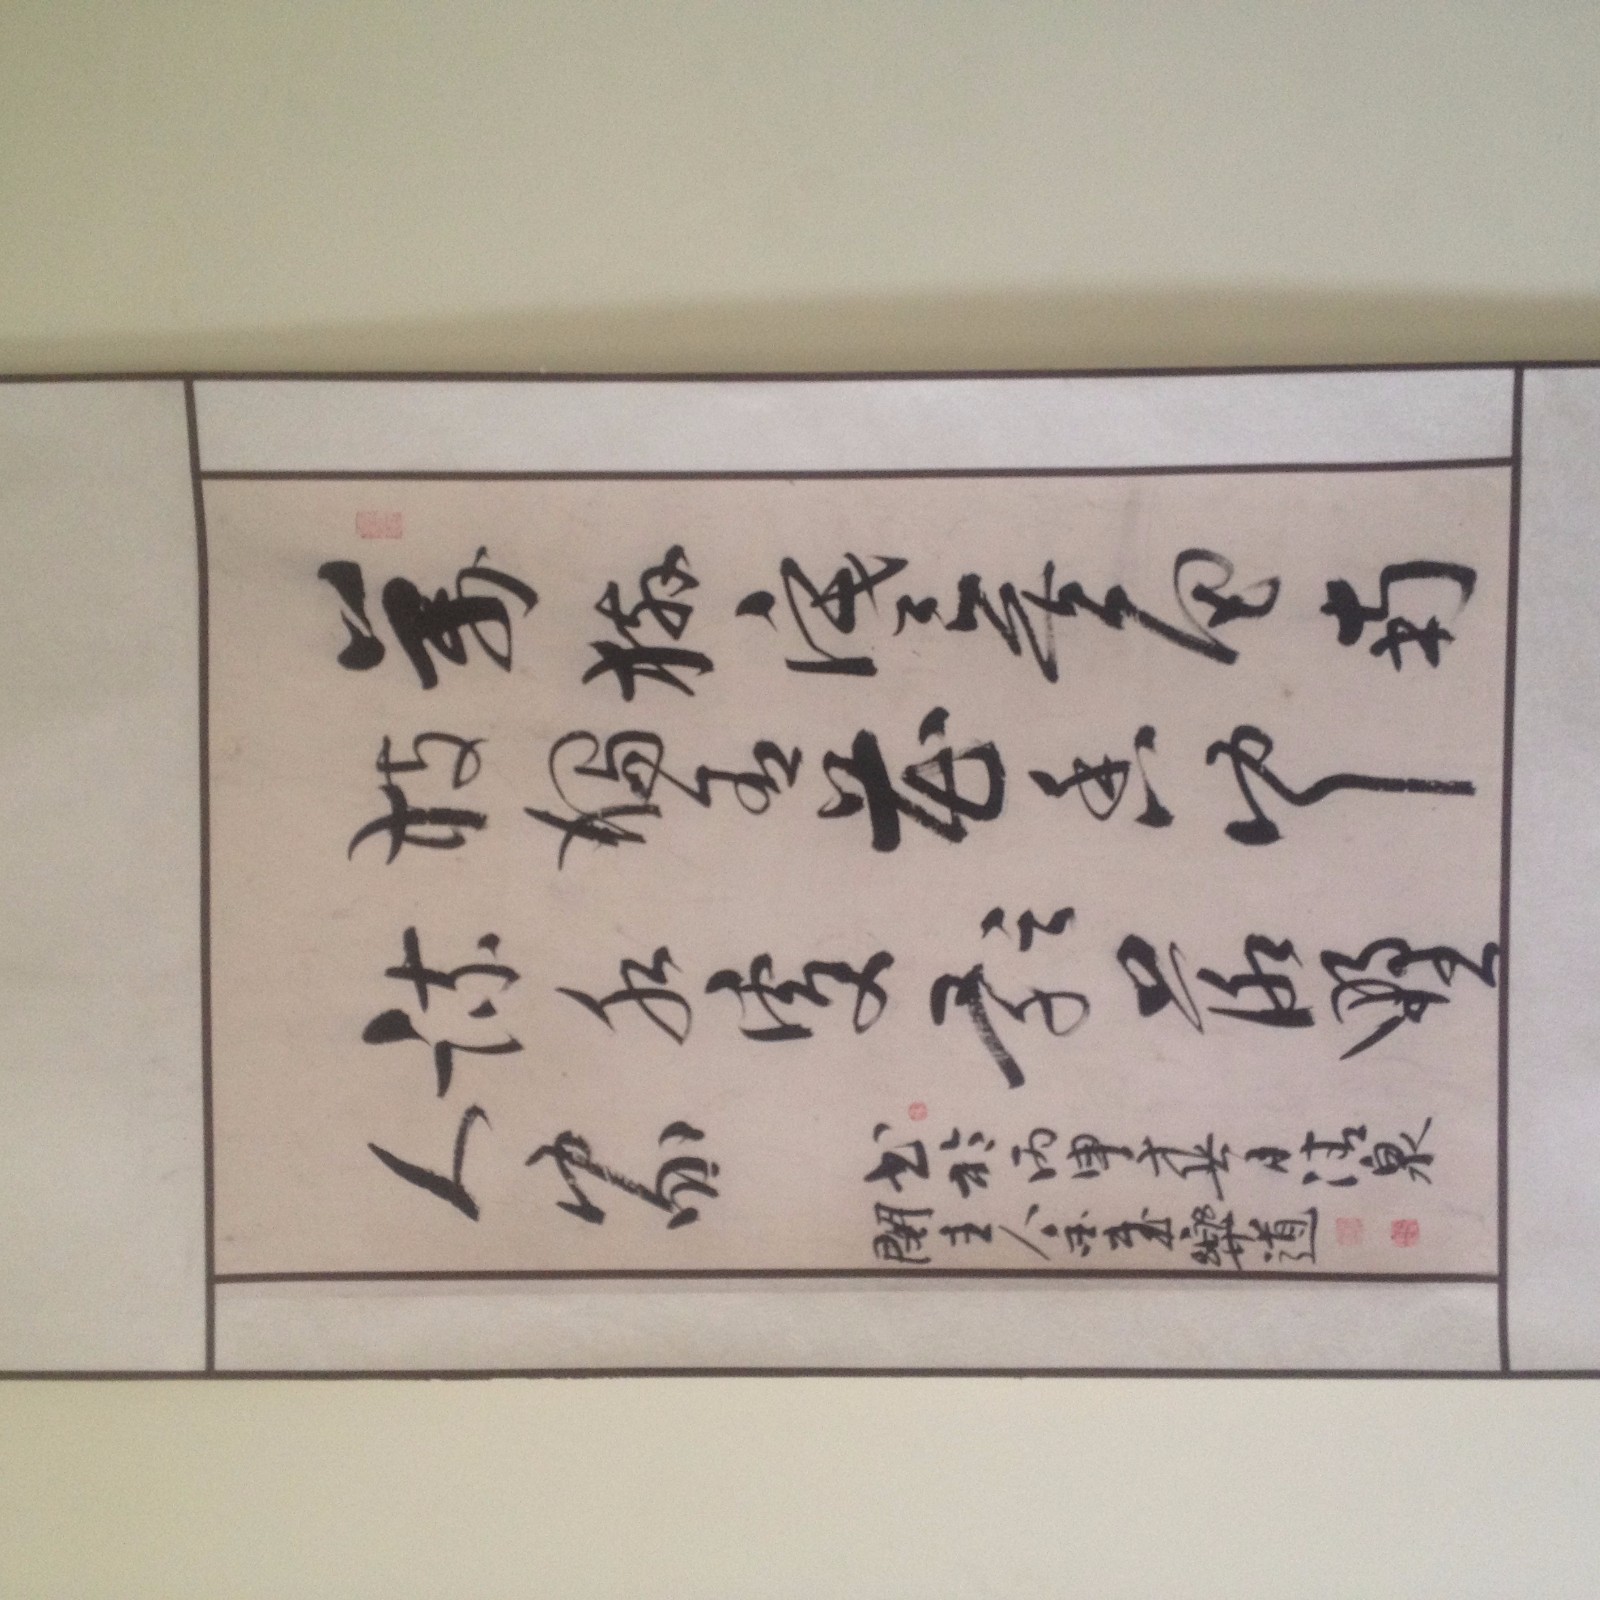 萬樹寒無色南
枝獨有花香聞
流水處影落野
人家
書於丙申年月清泉
閣主人樂道